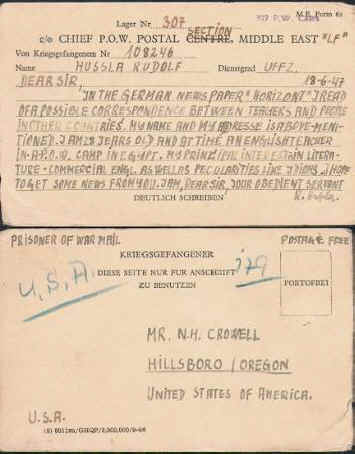 M.E. Form 6a
Lager Nr 307 307 P.W. Camp
SECTION
c/o CHIEF P.O.W. POSTAL CENTRE, MIDDLE EAST "LF"
Von Kriegsgefangenem Nr 108246
Name HUSSLA RUDOLF Dienstgrad UFFZ.
DEAR SIR, 18-6-47
"IN THE GERMAN NEWSPAPER "HORIZONT" I READ
OF A POSSIBLE CORRESPONDENCE BETWEEN TEACHERS AND PEOPLE
IN OTHER COUNTRIES. MY NAME AND MY ADRESSE IS ABOVE-MENI-
TIONED. I AM 28 YEARS OLD AND AT TIME AN ENGLISH TEACHER
IN A P.O.W. CAMP IN EGYPT. MY PRINCIPAL INTEREST IN LITERA-
TURE - COMMERCIAL ENGL. AS WELL AS PECULARITIES LIKE IDIOMS. I HOPE
TO GET SOME NEWS FROM YOU. I AM, DEAR SIR, YOUR OBEDIENT SERVANT
DEUTLICH SCHREIBEN
PRISONER OF WAR MAIL POSTAGE FREE
KRIEGSGEFANGENER
U.S.A. DIESE SEITE NUR FÜR ANSCHRIFT 179
ZU BENUTZEN PORTOFREI
MR. N.H. CROWELL
HILLSBORO / OREGON
UNITED STATES OF AMERICA.
U.S.A.